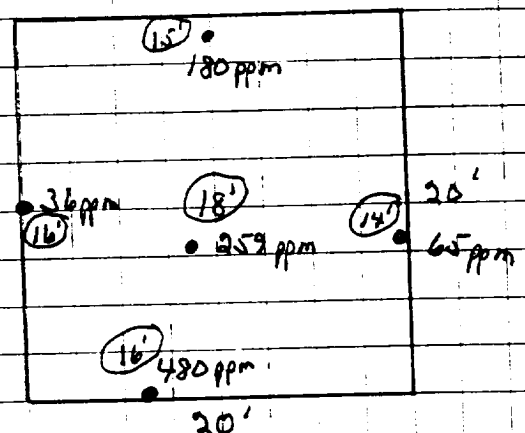 15'
180 ppm
36 ppm
16'
18'
259 ppm
14'
20'
65 ppm
16'
480 ppm
20'